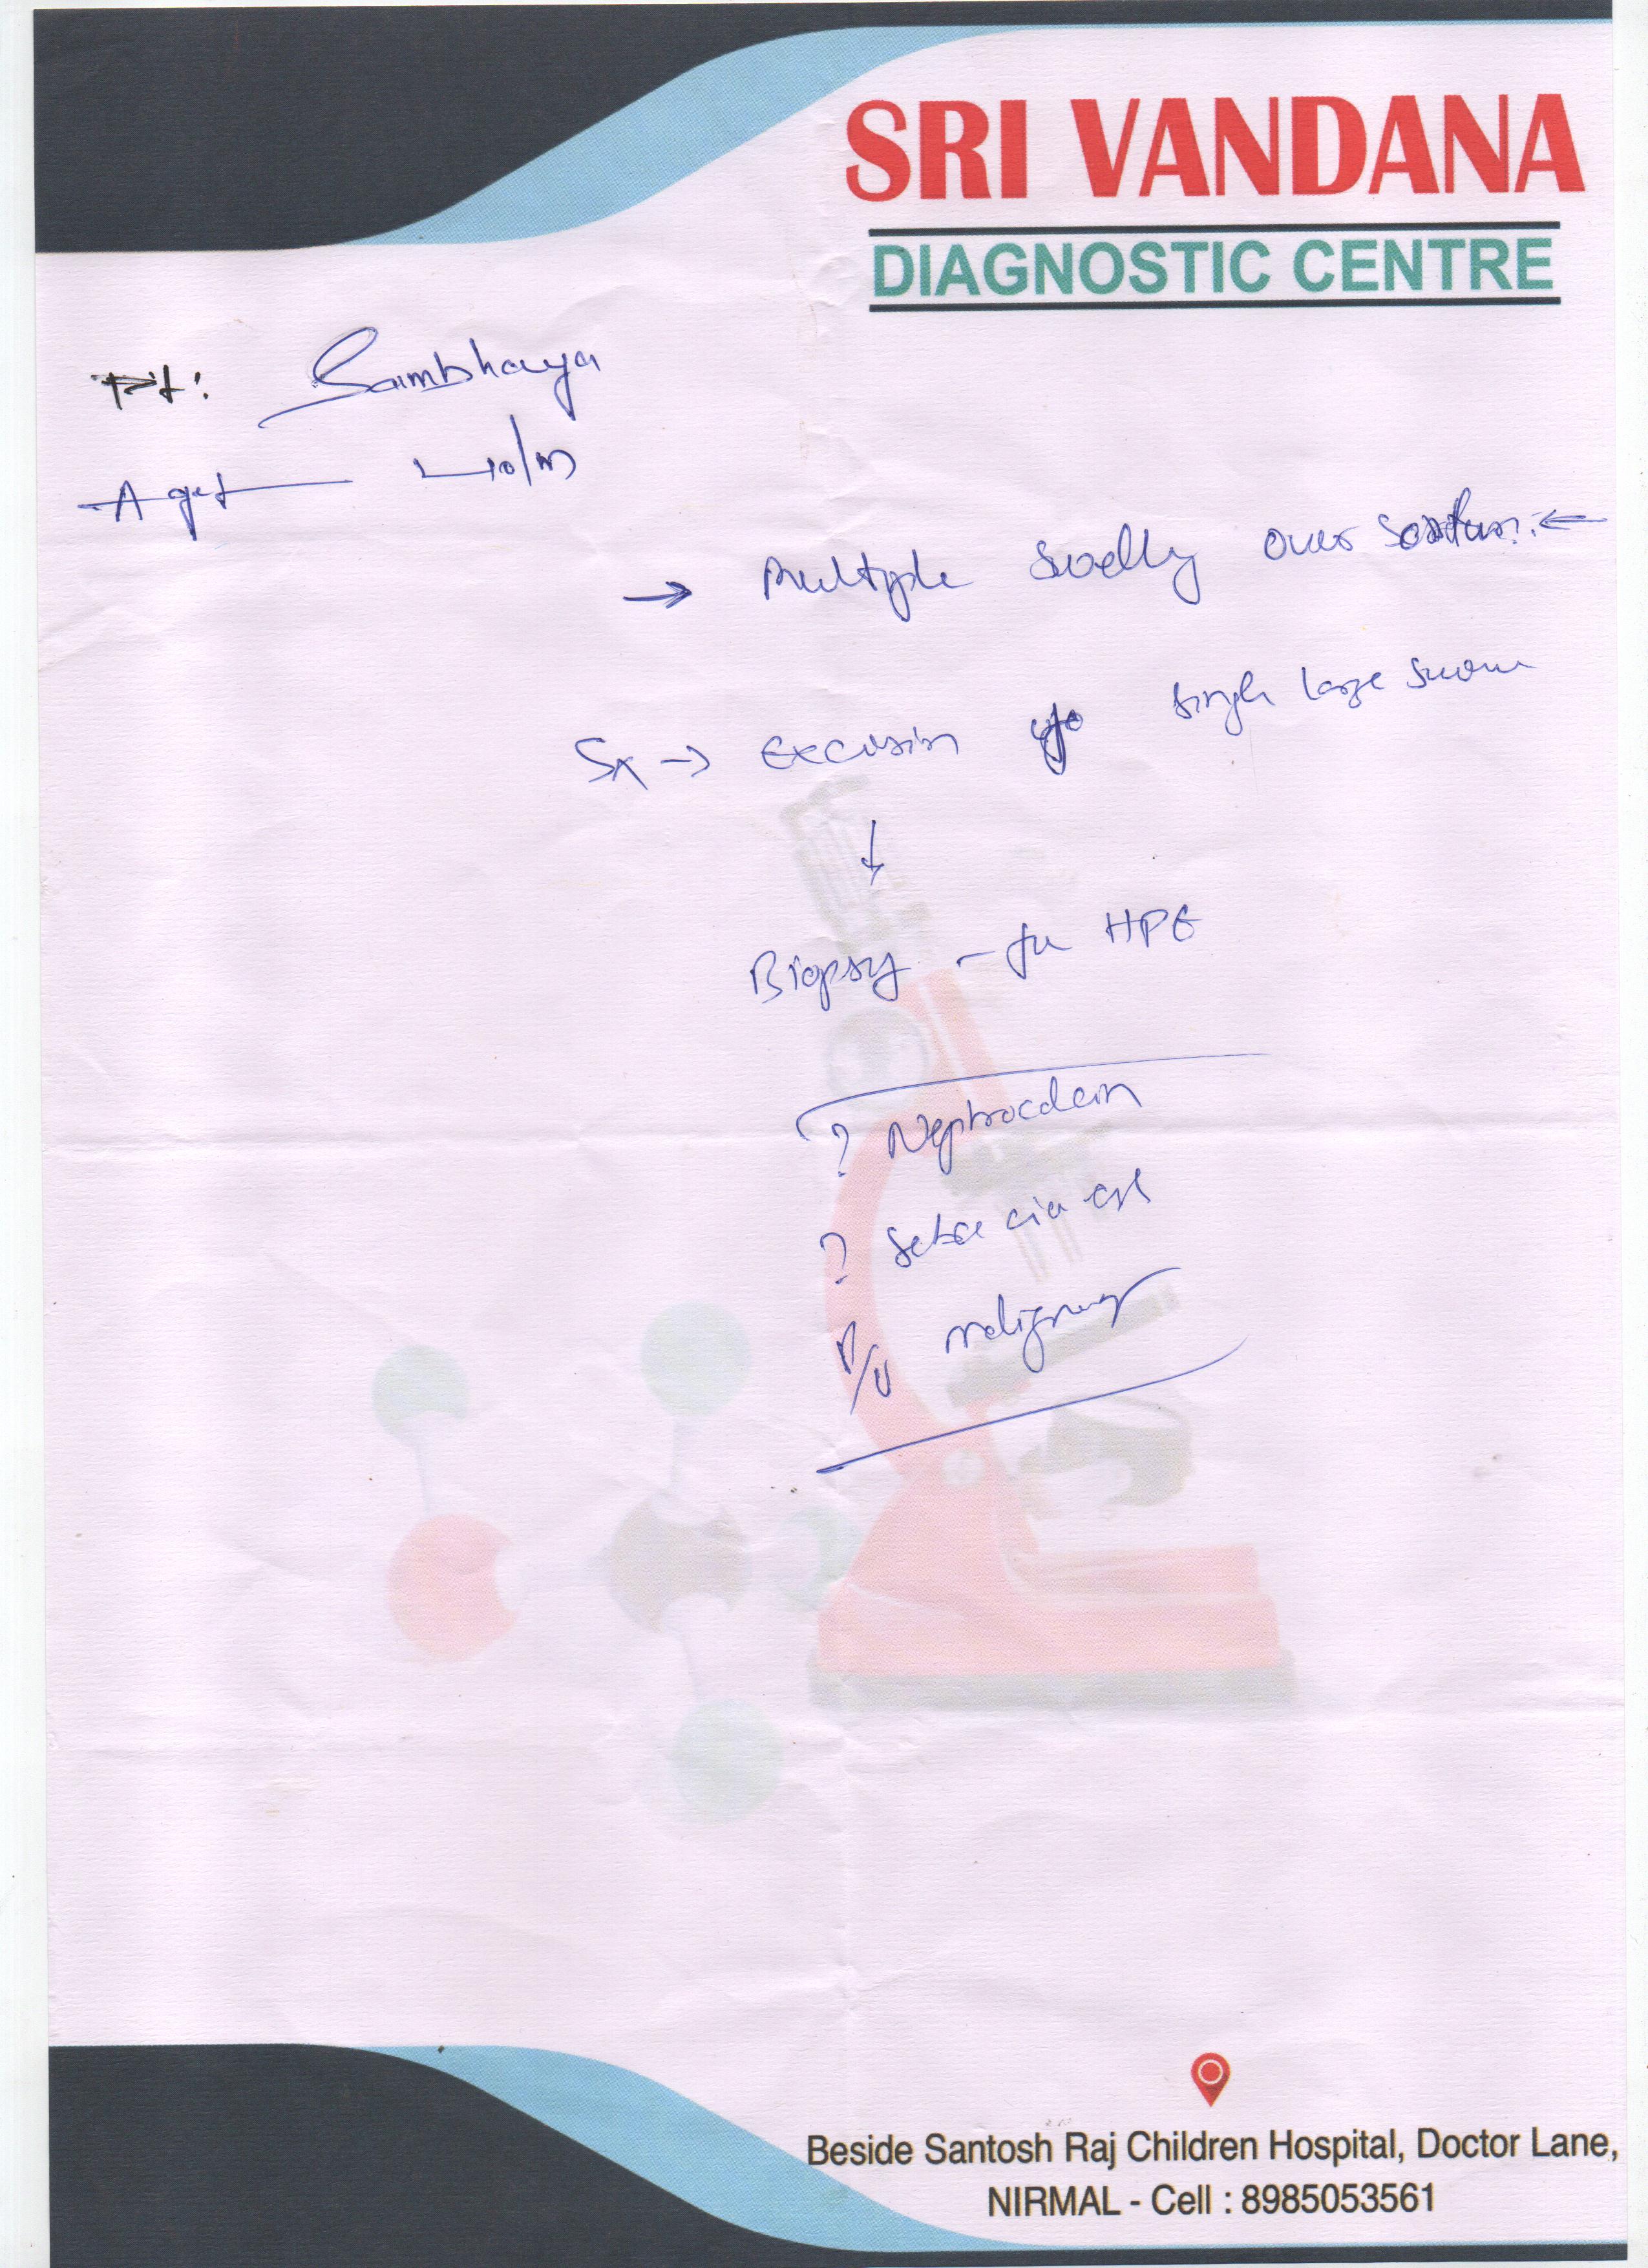 SRI VANDANA
DIAGNOSTIC CENTRE
Pt: Sambhavya
Age 40/m
→ Multiple swelly over ←
Sx → Excision single large
↓
Biopsy - for HPE
?
? Sebaceia cyst
R/o malignancy
Beside Santosh Raj Children Hospital, Doctor Lane,
NIRMAL - Cell : 8985053561